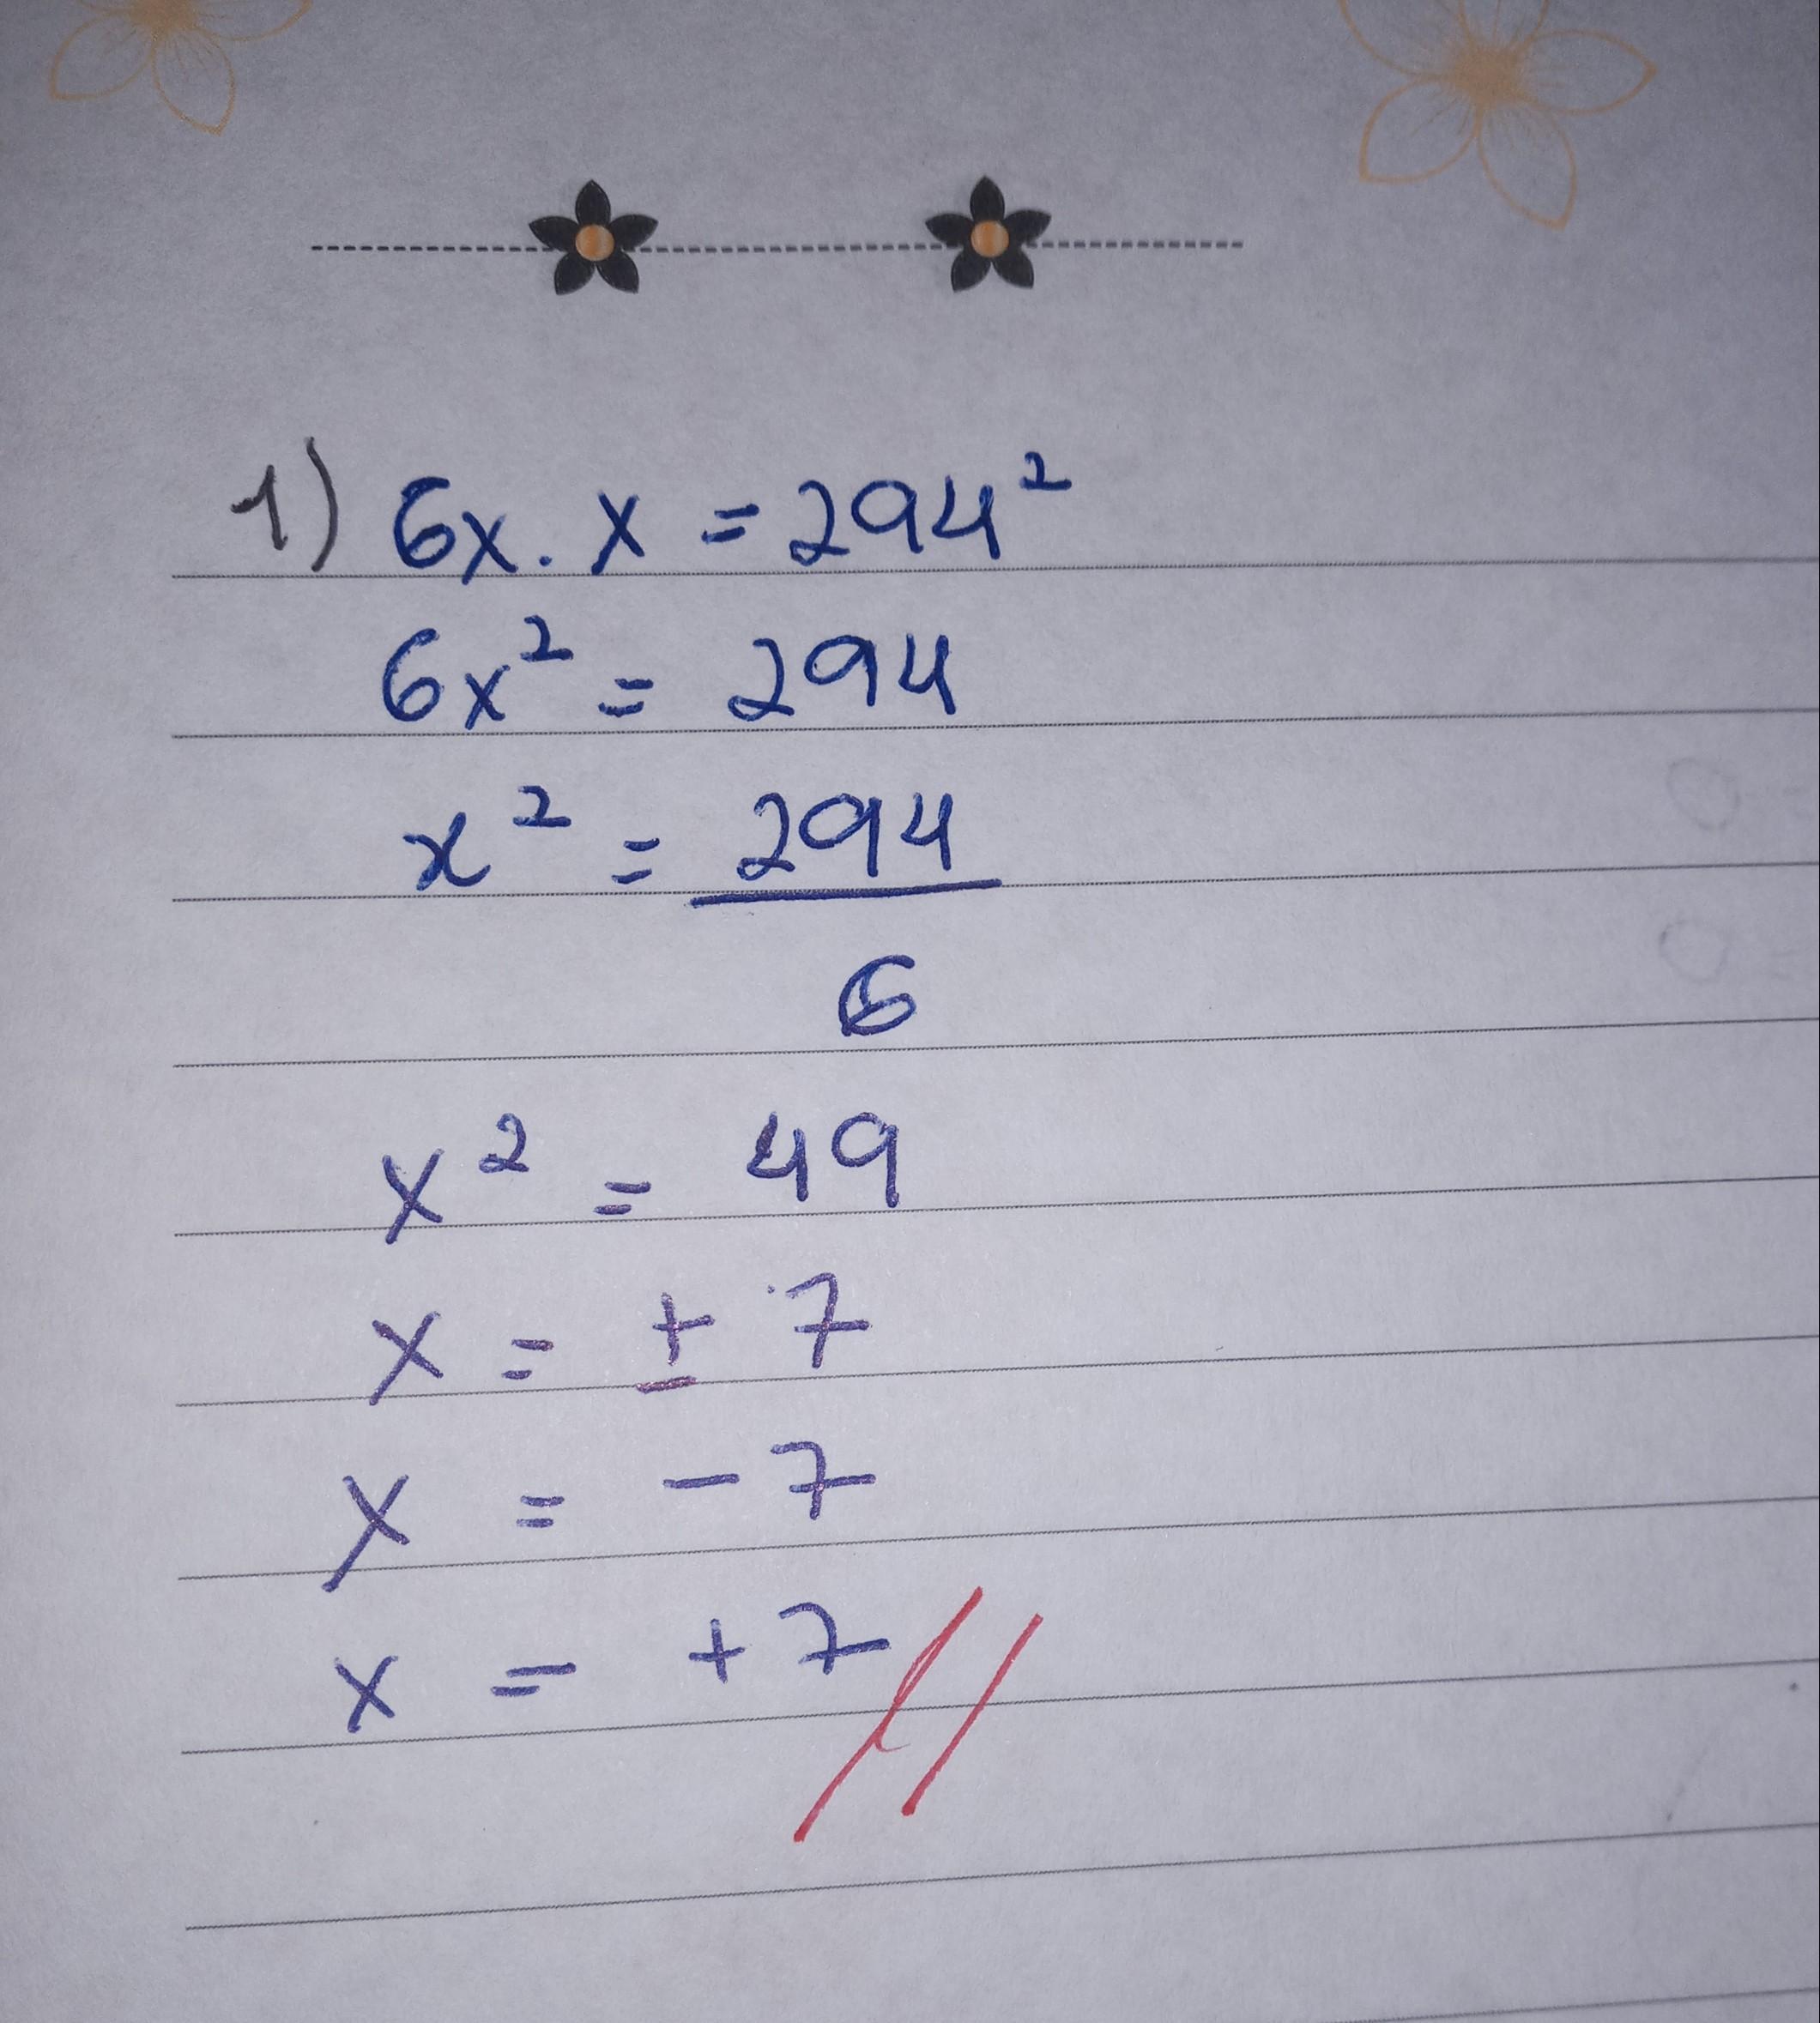 1) 6x . x = 294²
6x² = 294
x² = 294
6
x² = 49
x = ± 7
x = - 7
x = + 7 //